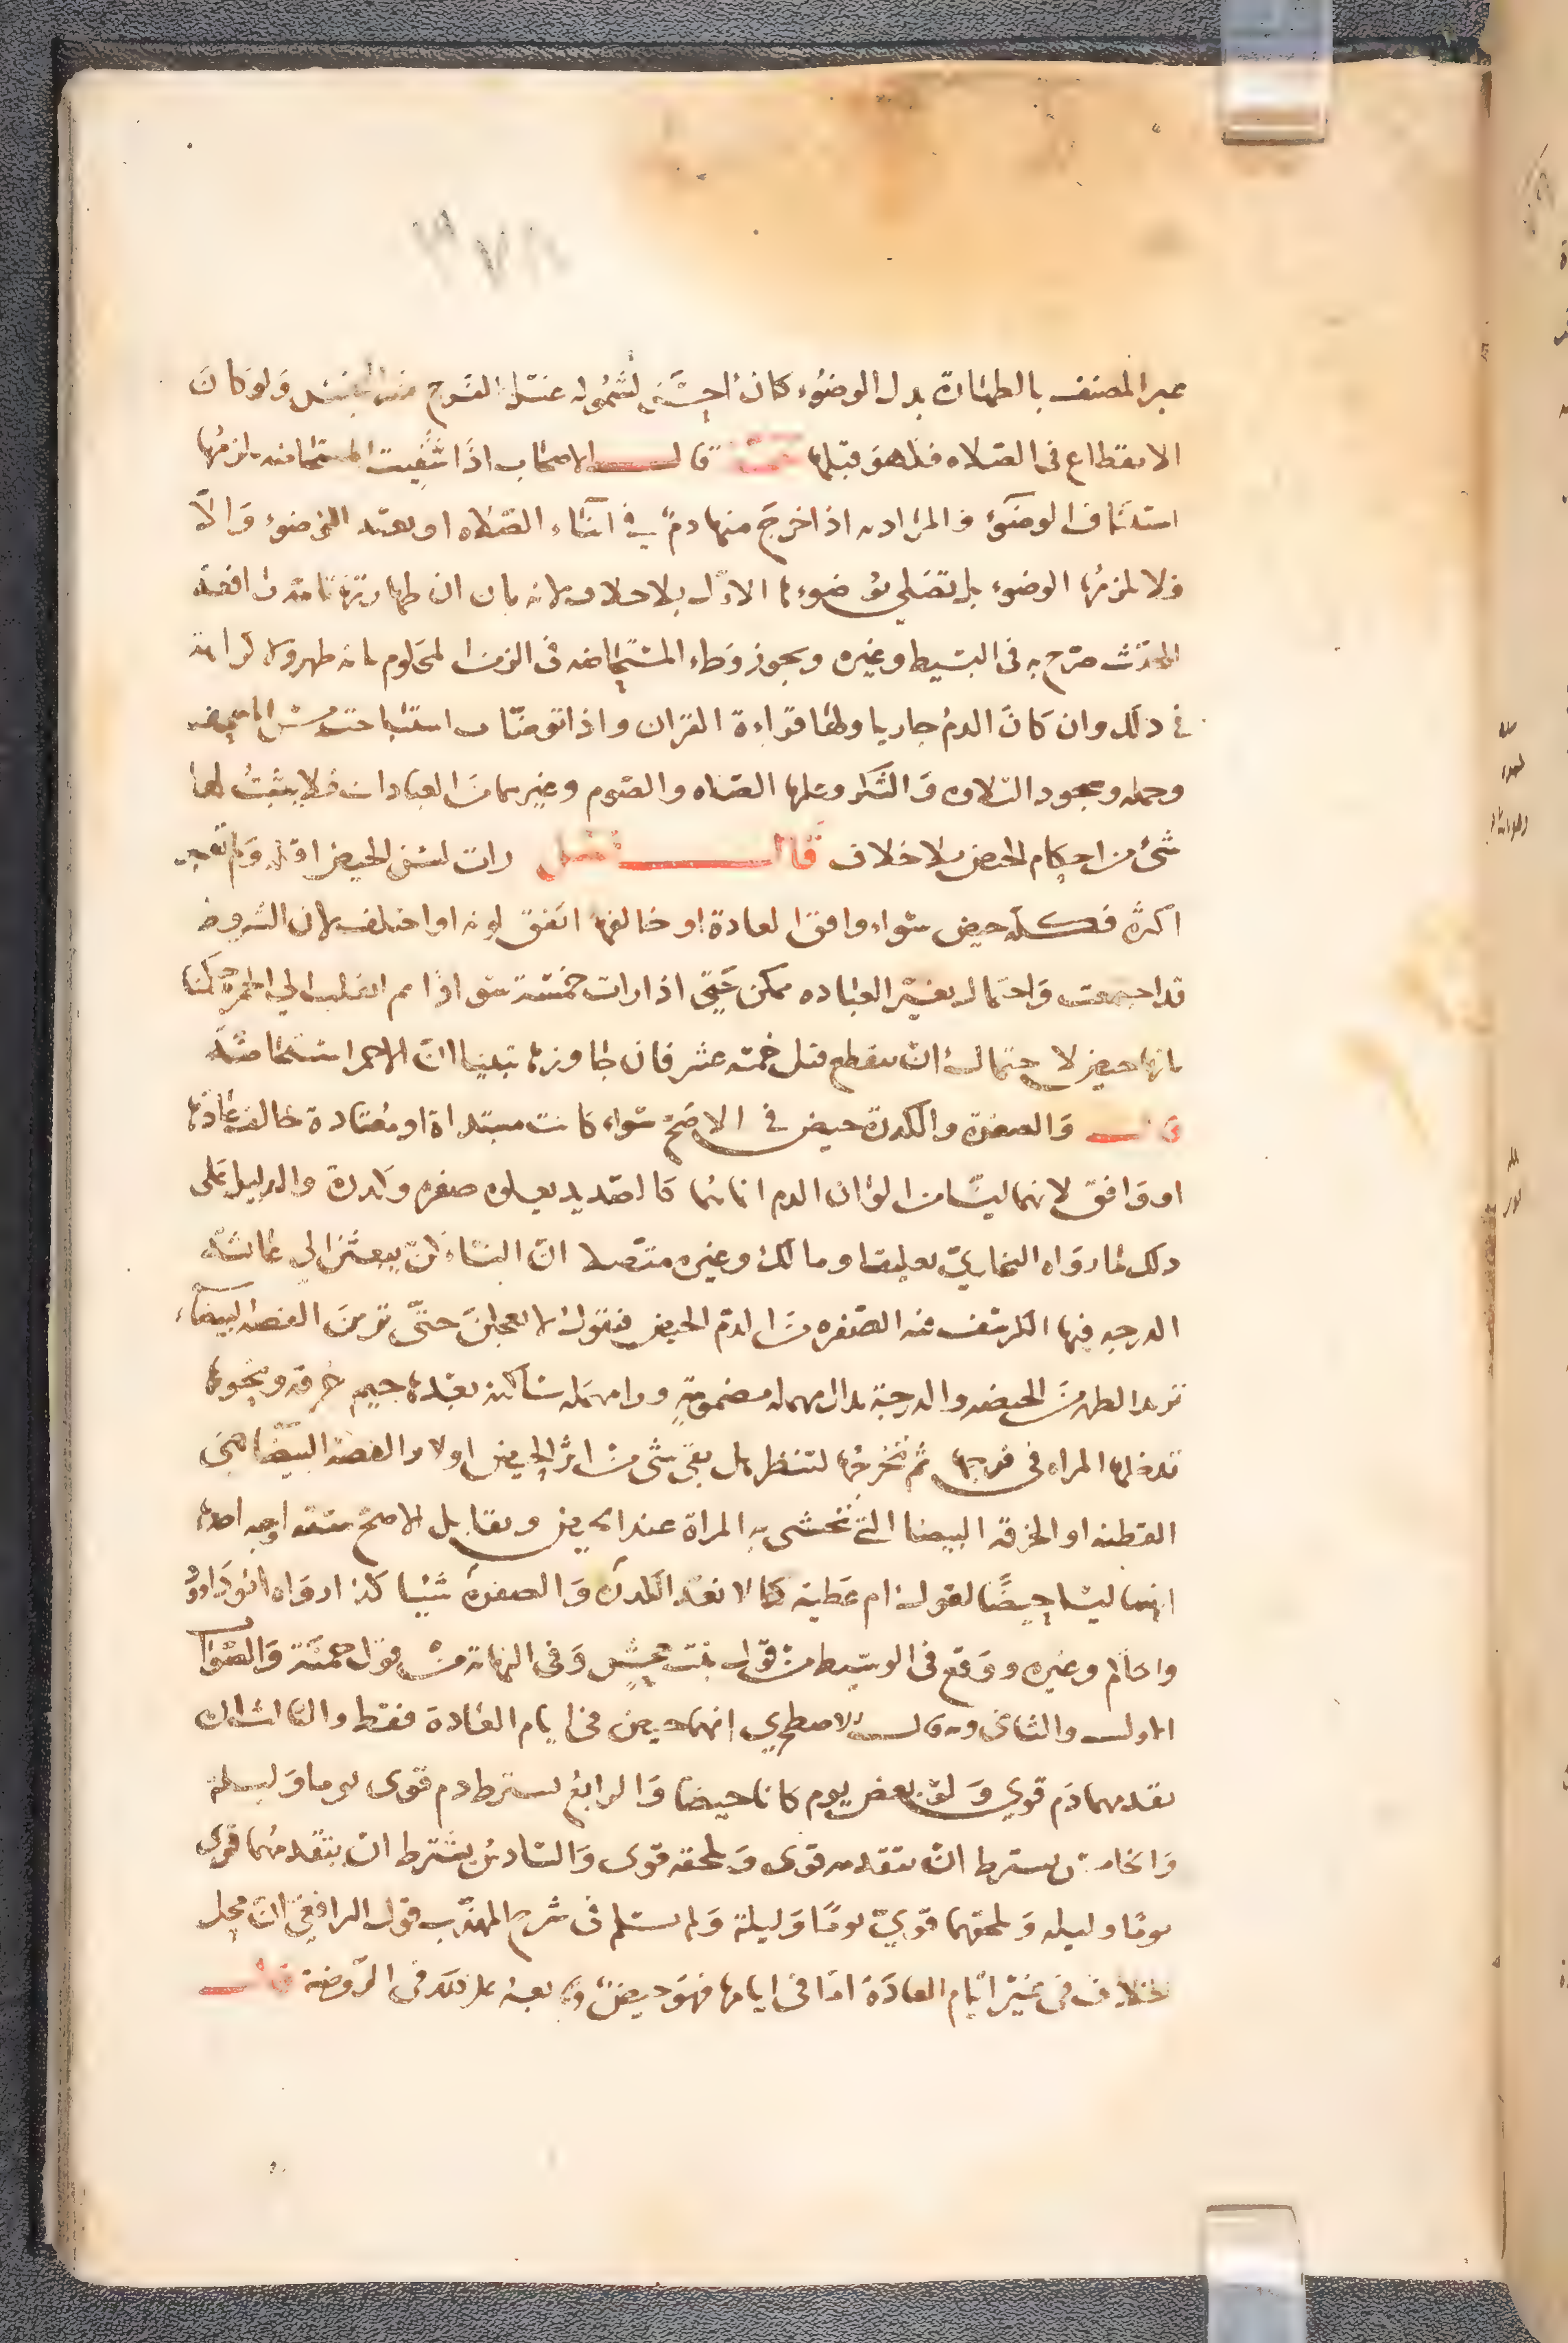 ٣٧٨
عبر المصنف بالطهارة بدل الوضوء كان احسن لشموله غسل الفرج من النجس ولو كان
الانقطاع في الصلاه فكهو قبلها قال الاصحاب اذا شفيت المستحاضه يلزمها
استئناف الوضوء والمراد به اذا خرج منها دم في اثناء الصلاه او بعد الوضوء والا
فلا يلزمها الوضوء بل تصلي بوضوءها الاول بلا خلاف لانه بان ان طهارتها تامة رافعة
الحدث صرح به في البسيط وغيره ويجوز وطء المستحاضه في الزمن المحكوم بانه طهر ولا كراهة
في ذلك وان كان الدم جاريا ولها قراءة القران واذا توضات استباحت مس المصحف
وحمله وسجود التلاوه والشكر وعليها الصلاه والصوم وغيرهما من العبادات فلا يثبت لها
شئ من احكام الحيض بلا خلاف قال فصل رات لسن الحيض اقله ولم تعبر
اكثره فكله حيض سواء وافق العادة او خالفها اتفق لونه او اختلف لان الشروط
قد اجتمعت واحتمال تغير العاده ممكن حتى اذا رات خمسة سوادا ثم انقلب الي الحمرة حكمنا
بانها حيض لاحتمال ان ينقطع قبل خمسة عشر فان جاوزها تبينا ان الاحمر استحاضة
قال والصفرة والكدرة حيض في الاصح سواء كانت مبتداة او معتادة خالف عادتها
او وافق لانهما ليسا من الوان الدم انما هما كالصديد يعلوه صفره وكدرة والدليل على
ذلك ما رواه البخاري تعليقا ومالك وغيره متصلا ان النساء كن يبعثن الي عائشة
الدرجه فيها الكرسف فيه الصفره من دم الحيض فتقول لا تعجلن حتى ترين القصة البيضاء
تريد الطهر من الحيضه والدرجة بدال مهمله مضمومة ورا مهمله ساكنه بعدها جيم خرقه ونحوها
تدخلها المراه في فرجها ثم تخرجها لتنظر هل بقي شئ من اثر الحيض اولا والقصة البيضا هي
القطنه او الخرقه البيضا التي تحتشي بها المراة عند الحيض ومقابل الاصح ستة اوجه احدها
انهما ليسا حيضا لقول ام عطية كنا لا نعد الكدرة والصفرة شيئا كذا رواه ابو داود
والحاكم وغيره ووقع في الوسيط من قول بنت جحش وفي النهاية من قول حمنة والصواب
الاول والثاني وبه قال الاصطخري انهما حيض في ايام العادة فقط والثالث ان
تقدمهما دم قوي ولو بعض يوم كانا حيضا والرابع يشترط دم قوى يوما وليلة
والخامس يشترط ان يتقدمه قوى ويلحقه قوى والسادس يشترط ان يتقدمهما قوى
يوما وليله ويلحقهما قوي يوما وليلة ولم يسلم في شرح المهذب قول الرافعي ان محل
الخلاف في غير ايام العادة اما في ايامها فهو حيض ولم ينبه على ذلك في الروضة قال